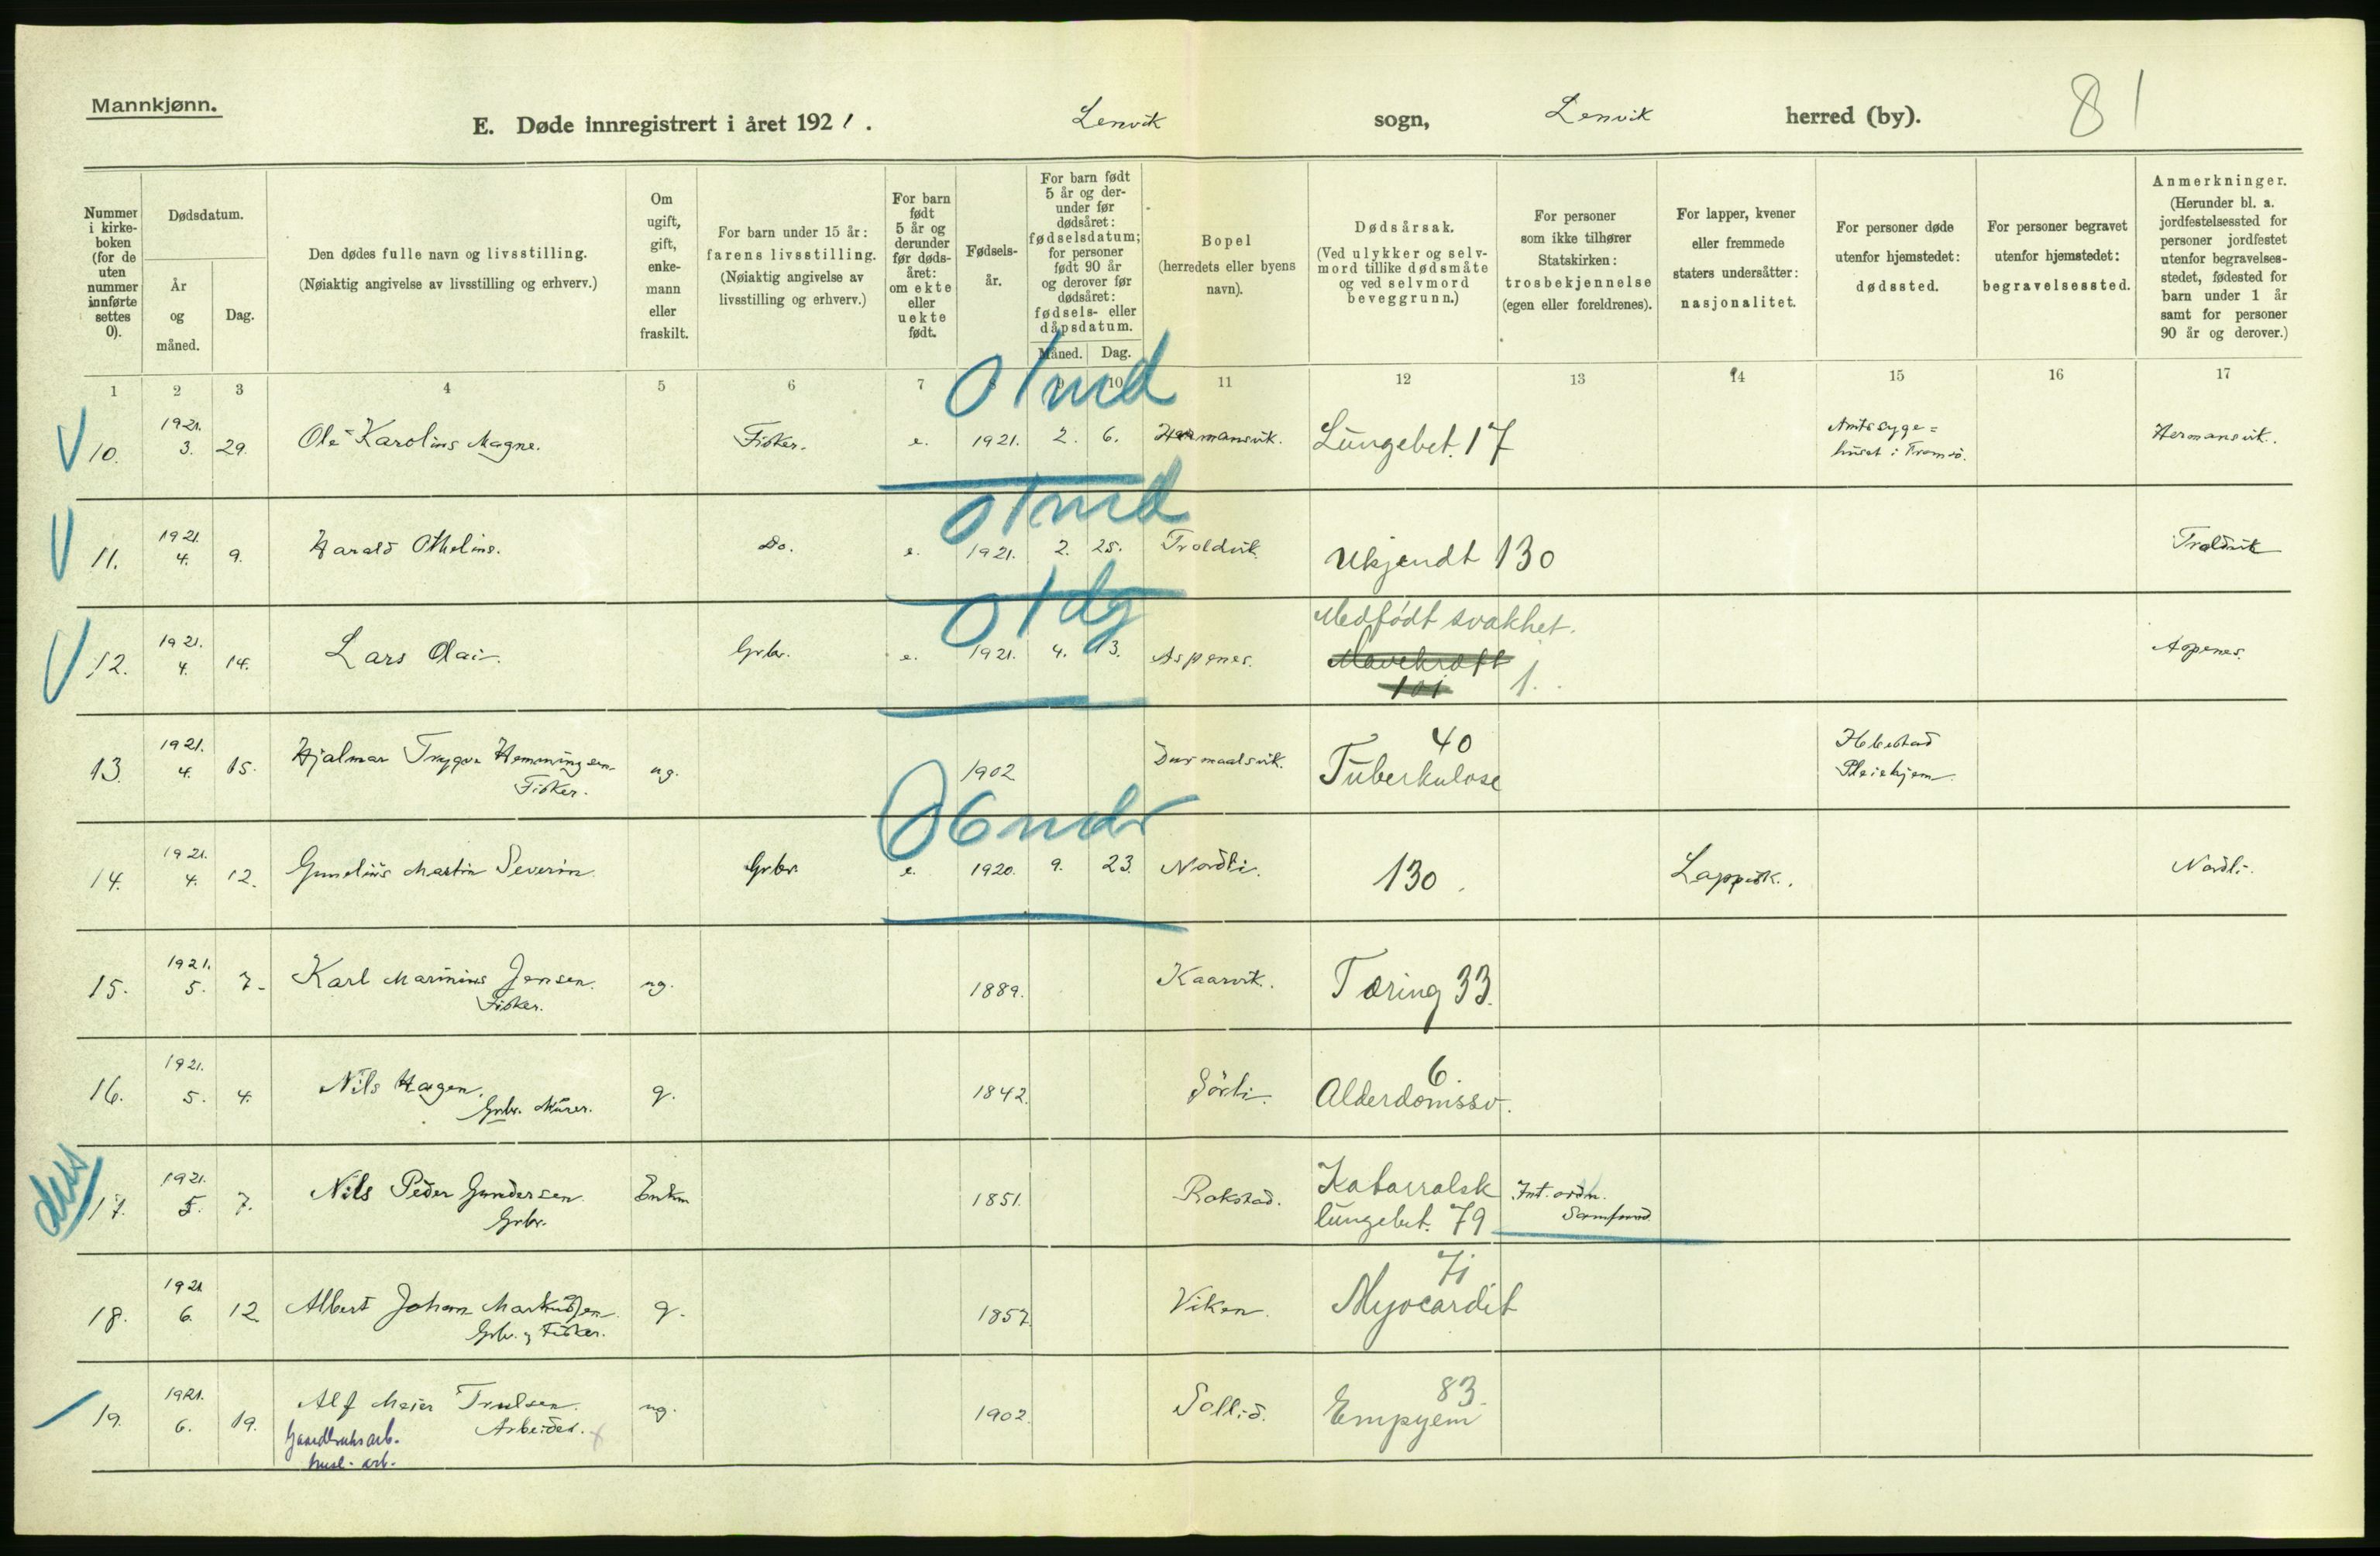 Mannkjønn.
E. Døde innregistrert i året 1921. Lenvik sogn, Lenvik herred (by). 81
Nummer i kirke-boken (for de uten nummer innførte settes 0).
Dødsdatum.
År og måned.
Dag.
Den dødes fulle navn og livsstilling.
(Nøiaktig angivelse av livsstilling og erhverv.)
Om ugift, gift, enke-mann eller fraskilt.
For barn under 15 år: farens livsstilling.
(Nøiaktig angivelse av livsstilling og erhverv.)
For barn født 5 år og derunder før døds-året: om ekte eller uekte født.
Fødsels-år.
For barn født 5 år og der-under før dødsåret: fødselsdatum; for personer født 90 år og derover før dødsåret: fødsels- eller dåpsdatum.
Måned. Dag.
Bopel (herredets eller byens navn).
Dødsårsak.
(Ved ulykker og selv-mord tillike dødsmåte og ved selvmord beveggrunn.)
For personer som ikke tilhører Statskirken: trosbekjennelse (egen eller foreldrenes).
For lapper, kvener eller fremmede staters undersåtter: nasjonalitet.
For personer døde utenfor hjemstedet: dødssted.
For personer begravet utenfor hjemstedet: begravelsessted.
Anmerkninger.
(Herunder bl. a. jordfestelsessted for personer jordfestet utenfor begravelses-stedet, fødested for barn under 1 år samt for personer 90 år og derover.)
1 2 3 4 5 6 7 8 9 10 11 12 13 14 15 16 17
01md
10. 1921. 3. 29. Ole Karolius Magne. Fisker. e. 1921. 2. 6. Hermansvik. Lungebet. 17 Amtssyge=huset i Tromsö. Hermansvik.
01md
11. 1921. 4. 9. Harald Othelius. Do. e. 1921. 2. 25. Troldvik. Ukjendt 130 Troldvik
01dg
12. 1921. 4. 14. Lars Olai. Grbr. e. 1921. 4. 13. Aspenes. Medfødt svakhet. 101 1. Aspenes.
13. 1921. 4. 15. Hjalmar Trygve Hemmingsen. Fisker. ug. 1902 40 Tuberkulose Pleiehjem.
06mdr
14. 1921. 4. 12. Martin Severin. Grbr. e. 1920. 9. 23. Nordli. 130. Lappisk. Nordli.
15. 1921. 5. 7. Karl Marinius Jensen. Fisker. ug. 1889. Kaarvik. Tæring 33.
16. 1921. 5. 4. Nils Hagen. Grbr. Murer. g. 1842. Sörli. 6. Alderdomssv.
17. 1921. 5. 7. Nils Peder Gundersen. Grbr. Enkm 1851. Rokstad. Katarralsk lungebet. 79 Int. ordn. Samfund
18. 1921 6. 12. Albert Johan Markussen. Grbr. og Fisker. g. 1857. Viken. 71 Myocardit
19. 1921. 6. 19. Alf Meier Trulsen. Arbeider. Gaardbruksarb. husl. arb. ug. 1902. Sollid. 83. Empyem